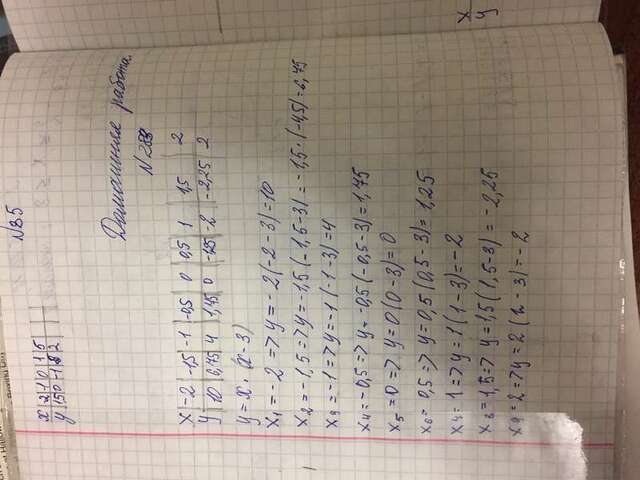 N 85
x -2 -1 0 1 5
Домашняя работа.
N 283
x -2 -1,5 -1 -0,5 0 0,5 1 1,5 2
y 10 6,75 4 1,75 0 -1,25 -2 -2,25 2
y = x · (x - 3)
x1 = -2 => y = -2(-2-3) = 10
x2 = -1,5 => y = -1,5(-1,5-3) = -1,5 · (-4,5) = 6,75
x3 = -1 => y = -1(-1-3) = 4
x4 = -0,5 => y = -0,5(-0,5-3) = 1,75
x5 = 0 => y = 0(0-3) = 0
x6 = 0,5 => y = 0,5(0,5-3) = 1,25
x4 = 1 => y = 1(1-3) = -2
x8 = 1,5 => y = 1,5(1,5-3) = -2,25
x9 = 2 => y = 2(2-3) = -2
x
y